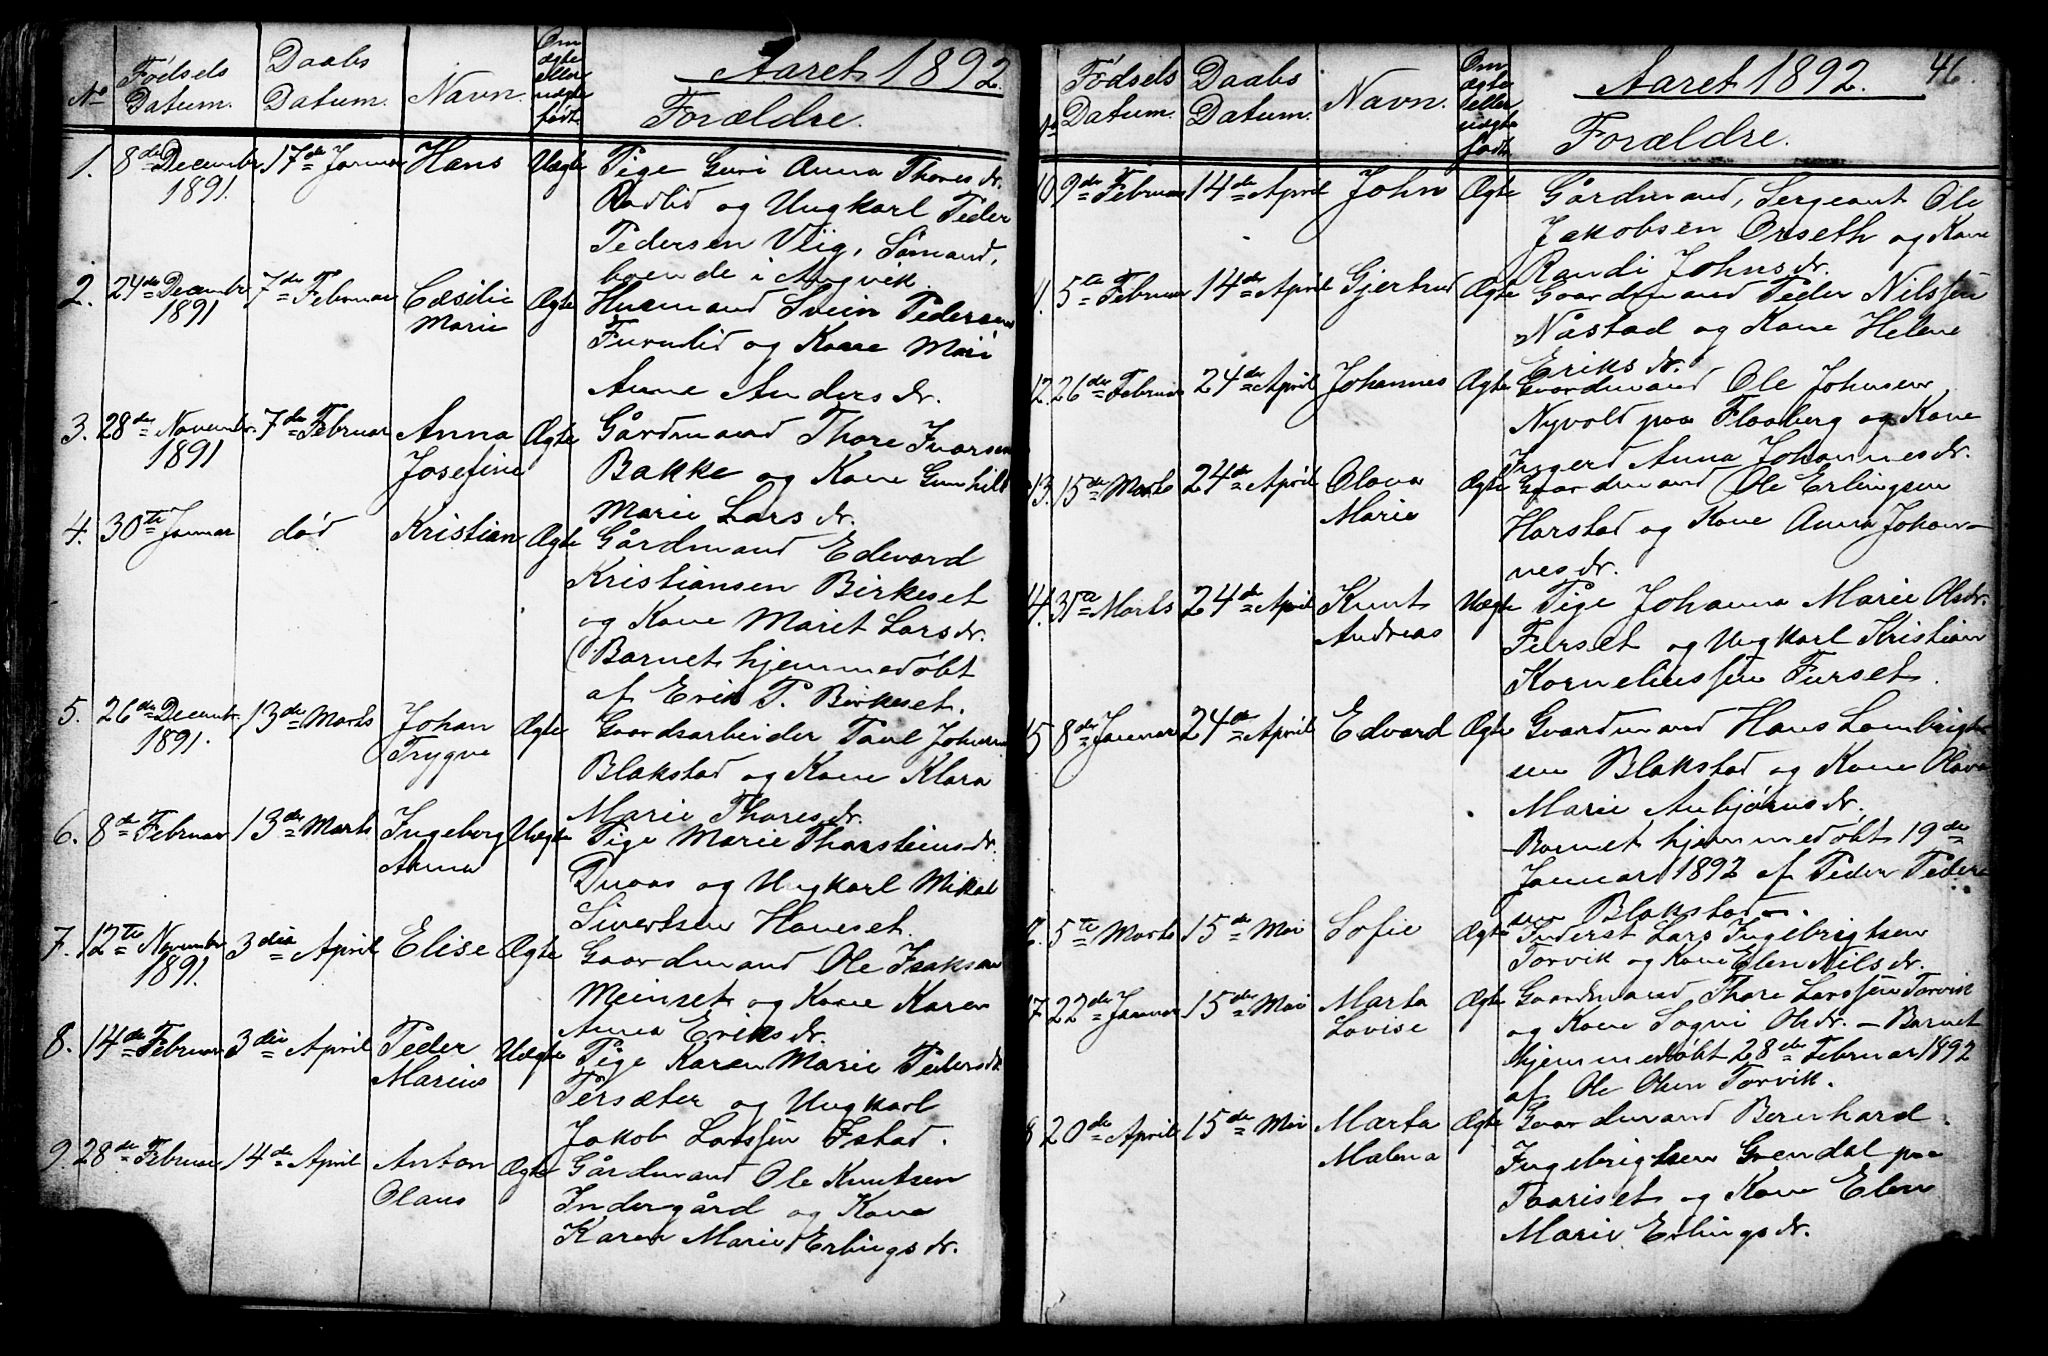 Aaret 1892.
No Fødsels Datum. Daabs Datum. Navn. Om ægte eller uægte født. Forældre.
1. 8de Decembr 17de Januar Hans Uægte Pige Guri Anna Thoresdr.
1891. Rødlid og Ungkarl Peder
Pedersen Viig, Sømand,
boende i Angvik.
2. 24de Decembr 7de Februar Cæsilie Ægte Husmand Svein Pedersen
1891 Marie Furulid og Kone Mari
Anne Andersdr.
3. 28de Novembr 7de Februar Anna Ægte Gårdmand Thore Ivarsen
1891 Josefine Bakke og Kone Gunhild
Marie Larsdr.
4. 30te Januar død Kristian Ægte Gårdmand Edevard
Kristiansen Birkeset
og Kone Maret Larsdr.
(Barnet hjemmedøbt
af Erik P. Birkeset.
5. 26de Decembr. 13de Marts Johan Ægte Gaardsarbeider Paul Johnsen
1891. Trygve Blakstad og Kone Klara
Marie Thoresdr.
6. 8de Februar 13de Marts Ingeborg Uægte Pige Marie Thorsteinsdr.
Anna og Ungkarl Mikal
Sivertsen Haneset.
7. 12te Novembr 3die April Elise Ægte Gaardmand Ole Isaksen
1891. Meinset og Kone Karen
Anna Eriksdr.
8. 14de Februar 3die April Peder Uægte Pige Karen Marie Pedersdr.
Marius Fersæter og Ungkarl
Jakob Larssen Istad.
9. 28de Februar 14de April Anton Ægte Gårdmand Ole Knutsen
Olaus Indergård og Kone
Karen Marie Erlingsdr.
Aaret 1892. 46.
No Fødsels Datum. Daabs Datum. Navn. Om ægte eller uægte født. Forældre.
10 9de Februar 14de April John Ægte Gårdmand, Sergeant Ole
Jakobsen Orseth og Kone
Randi Johnsdr.
11. 5te Februar 14de April Gjertrud Ægte Gaardmand Peder Nilssen
Nåstad og Kone Helene
Eriksdr.
12. 26de Februar 24de April Johannes Ægte Gaardmand Ole Johnsen
Nyvold paa Flaaberg og Kone
Ingerd Anna Johannesdr.
13. 15de Marts 24de April Olava Ægte Gaardmand Ole Erlingsen
Marie Harstad og Kone Anna Johan-
nesdr.
14. 31te Marts 24de April Knut Uægte Pige Johanna Marie Olsdr.
Andreas Furset og Ungkarl Kristian
Korneliussen Furset.
15 8de Januar 24de April Edvard Ægte Gaardmand Hans Lambrigt-
sen Blakstad og Kone Olava
Marie Anbjørnsdr.
Barnet hjemmedøbt 19de
Januar 1892 af Peder Peder-
sen Blakstad.
5te Marts 15de Mai Sofie Ægte Inderst Lars Ingebrigtsen
Torvik og Kone Elen Nilsdr.
17 22de Januar 15de Mai Marta Ægte Gaardmand Thore Larssen Torvik
Lovise og Kone Sogni Olsdr. – Barnet
hjemmedøbt 28de Februar 1892
af Ole Olsen Torvik.
8 20de April 15de Mai Marta Ægte Gaardmand Bernhard
Malena Ingebrigtsen Grendal paa
Taariset og Kone Elen
Marie Erlingsdr.